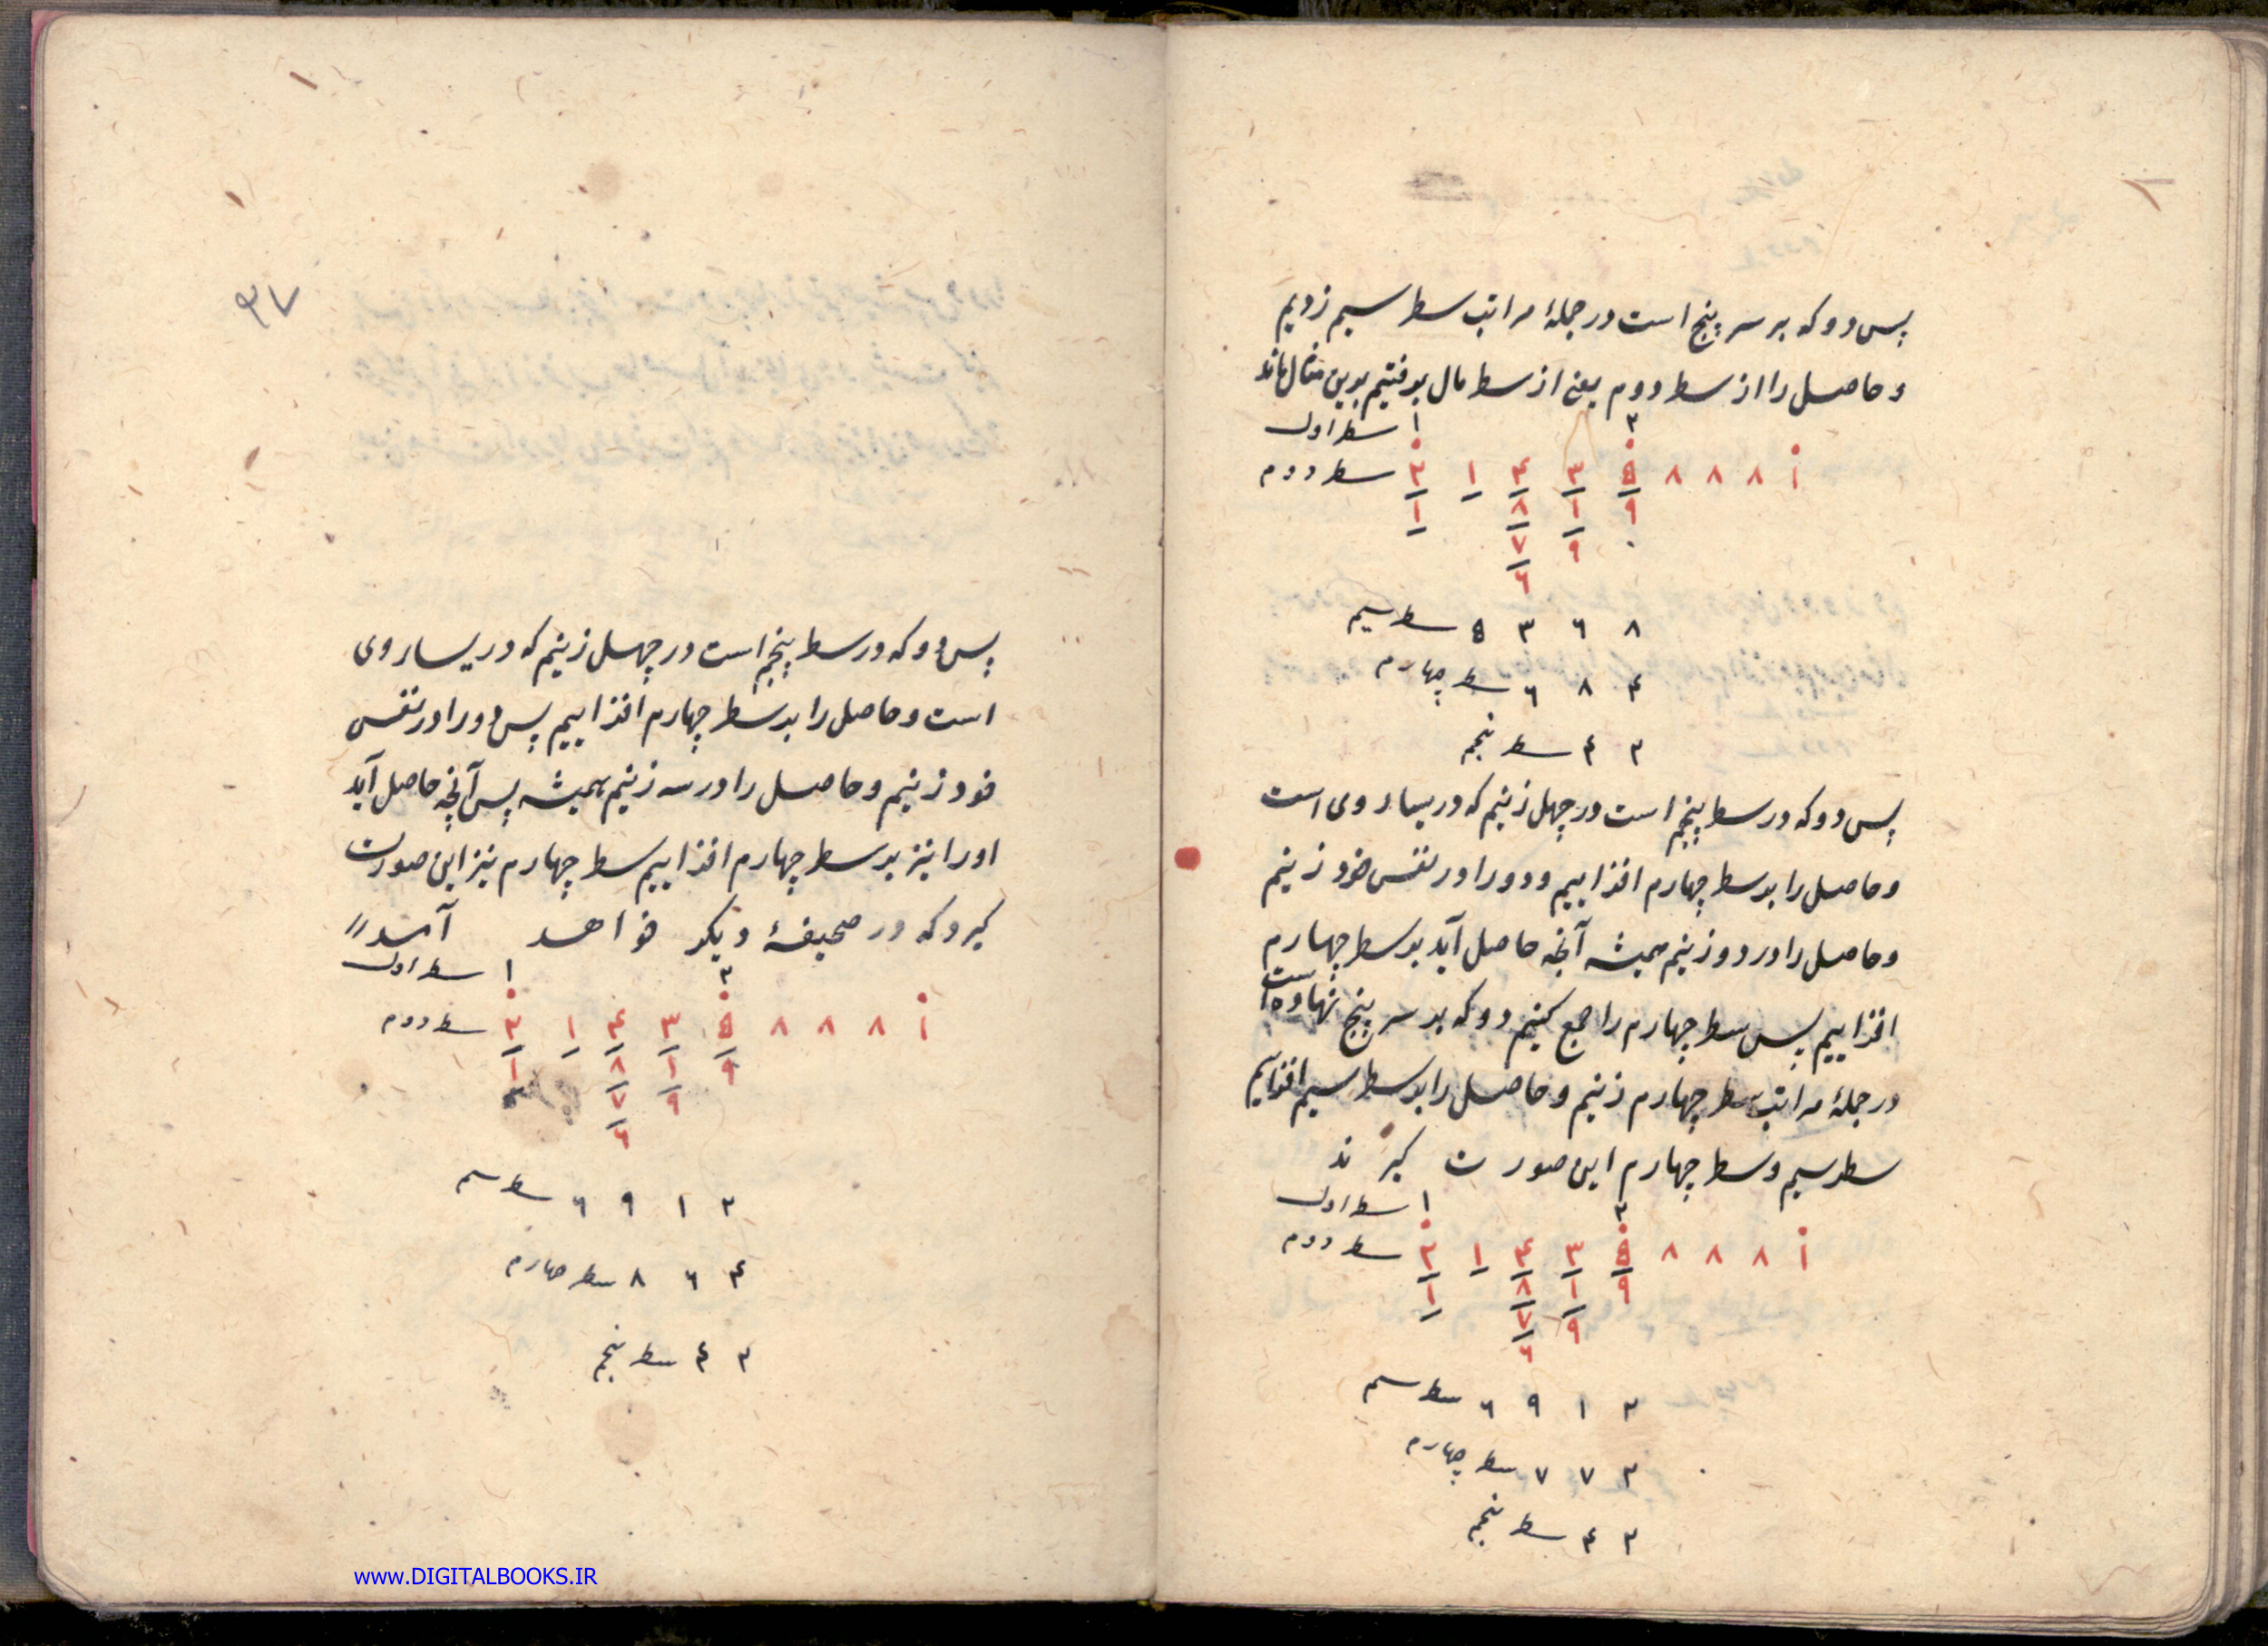 پس دو که بر سر پنج است در جملهٔ مراتب سطر سیم زدیم
و حاصل را از سطر دوم یعنی از سطر مال برفتیم بدین مثال ماند
۲ ۱ سطر اول
۲ ۱ ۴ ۳ ۵ ۸ ۸ ۸ ۱ سطر دوم
۱ ۸ ۱ ۹
۷ ۹ ۰
۶
۵ ۳ ۶ ۸ سطر سیم
۶ ۸ ۴ سطر چهارم
۴ ۲ سطر پنجم
پس دو که در سطر پنجم است در چهل زنیم که در یسار وی است
و حاصل را بر سطر چهارم افزاییم و دو را در نفس خود زنیم
و حاصل را در دو زنیم همیشه آنچه حاصل آید بر سطر چهارم
افزاییم پس سطر چهارم را جمع کنیم دو که بر سر پنج نهاده است
در جملهٔ مراتب سطر چهارم زنیم و حاصل را بر سطر سیم افزاییم
سطر سیم و سطر چهارم این صورت گیرند
۲ ۱ سطر اول
۲ ۱ ۴ ۳ ۵ ۸ ۸ ۸ ۱ سطر دوم
۱ ۸ ۱ ۹
۷ ۹
۶
۶ ۹ ۱ ۲ سطر سیم
۷ ۷ ۲ سطر چهارم
۴ ۲ سطر پنجم
۳۷
پس دو که در سطر پنجم است در چهل زنیم که در یسار وی
است و حاصل را بر سطر چهارم افزاییم پس دو را در نفس
خود زنیم و حاصل را در سه زنیم همیشه پس آنچه حاصل آید
او را نیز بر سطر چهارم افزاییم سطر چهارم نیز این صورت
گیرد که در صحیفهٔ دیگر خواهد آمد
۲ ۱ سطر اول
۲ ۱ ۴ ۳ ۵ ۸ ۸ ۸ ۱ سطر دوم
۱ ۸ ۱ ۹
۷ ۹
۶
۶ ۹ ۱ ۲ سطر سیم
۸ ۶ ۴ سطر چهارم
۴ ۲ سطر پنجم
www.DIGITALBOOKS.IR